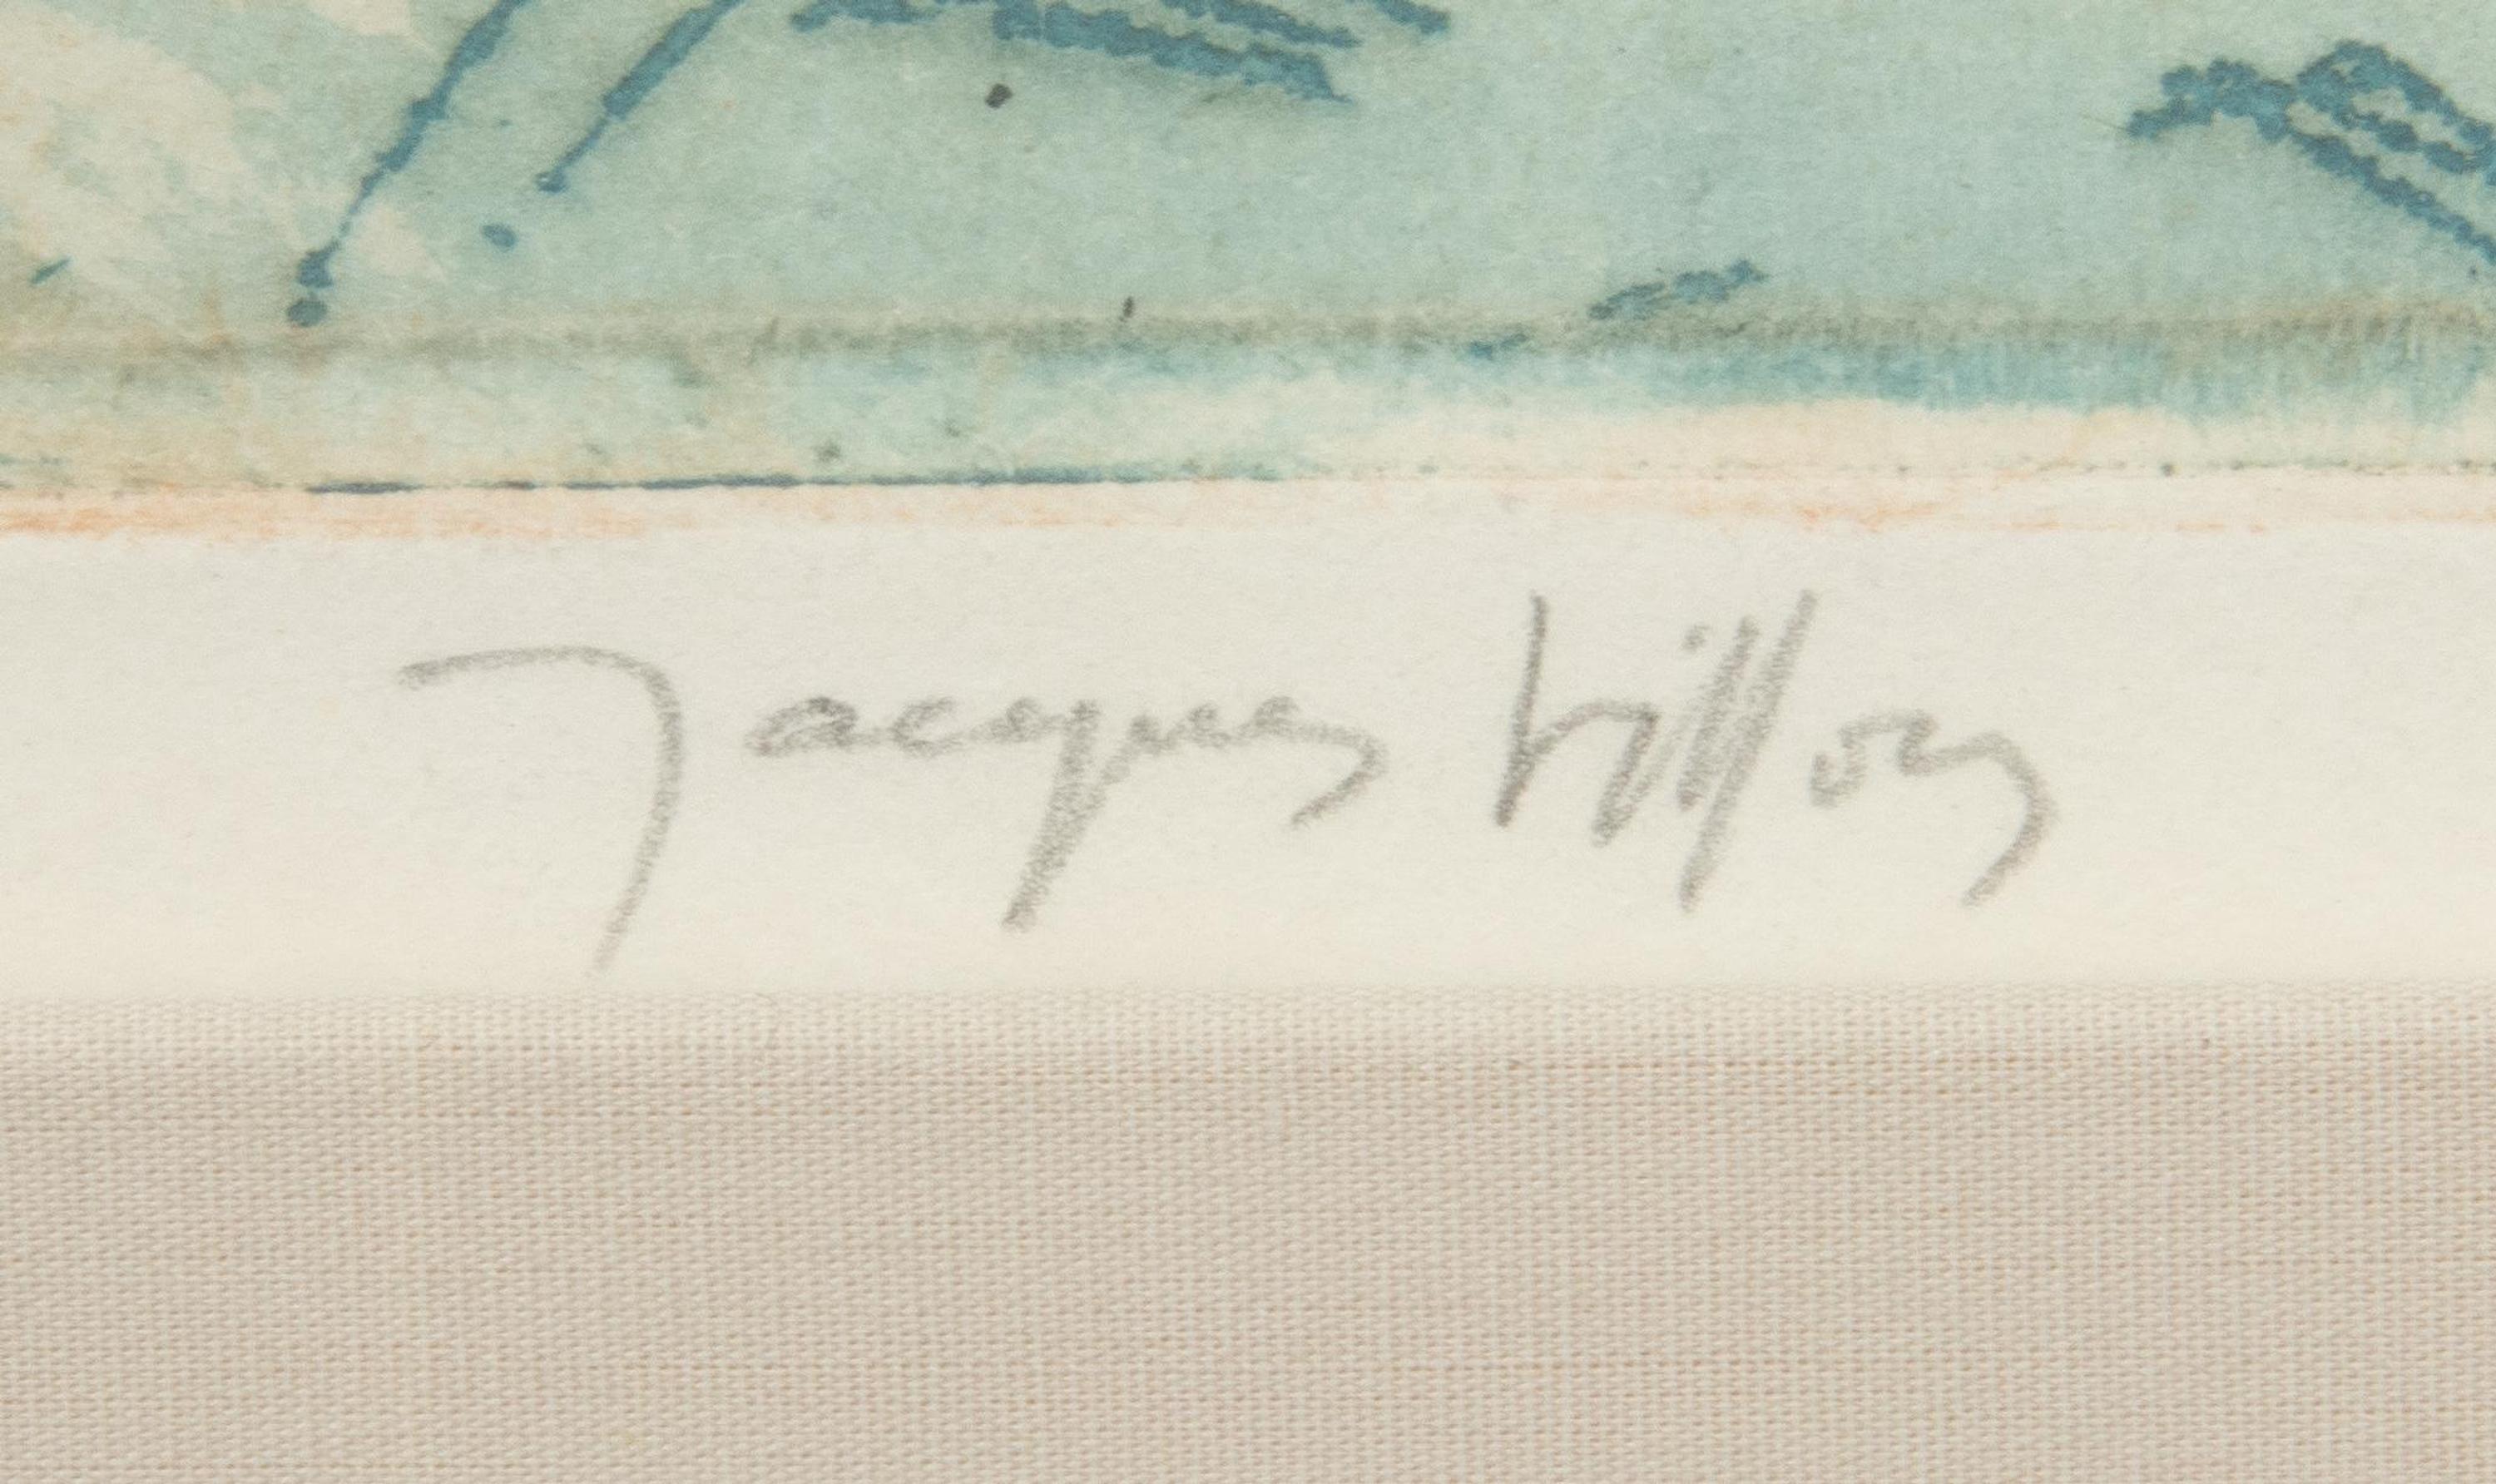 Jacques Villon